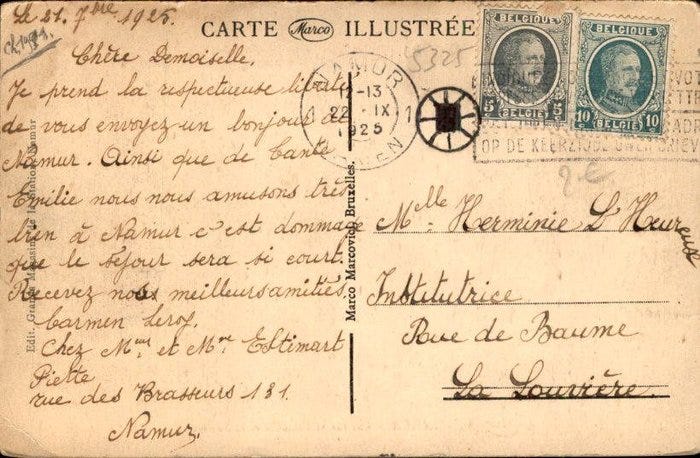 Le 21 7bre 1925
CARTE Marco ILLUSTRÉE
Chère Demoiselle,
Je prend la respectueuse liberté
de vous envoyez un bonjour de
Namur. Ainsi que de tante
Emilie nous nous amusons très
bien à Namur c'est dommage
que le séjour sera si court.
Recevez nos meilleurs amitiés
Carmen Leroy.
Chez Mme et Mr Estimart
Piette
rue des Brasseurs 131
Namur.
Edit. Grands Magasins de la Station Namur
Marco Marcovici Bruxelles.
5325
NAMUR
1 22 IX 1
1925
NAMEN
BELGIQUE
5 5
BELGIË
BELGIQUE
10 10
BELGIË
OP DE KEERZIJDE
2e
Melle Herminie L'Heureuse
Institutrice
Rue de Baume
La Louvière.